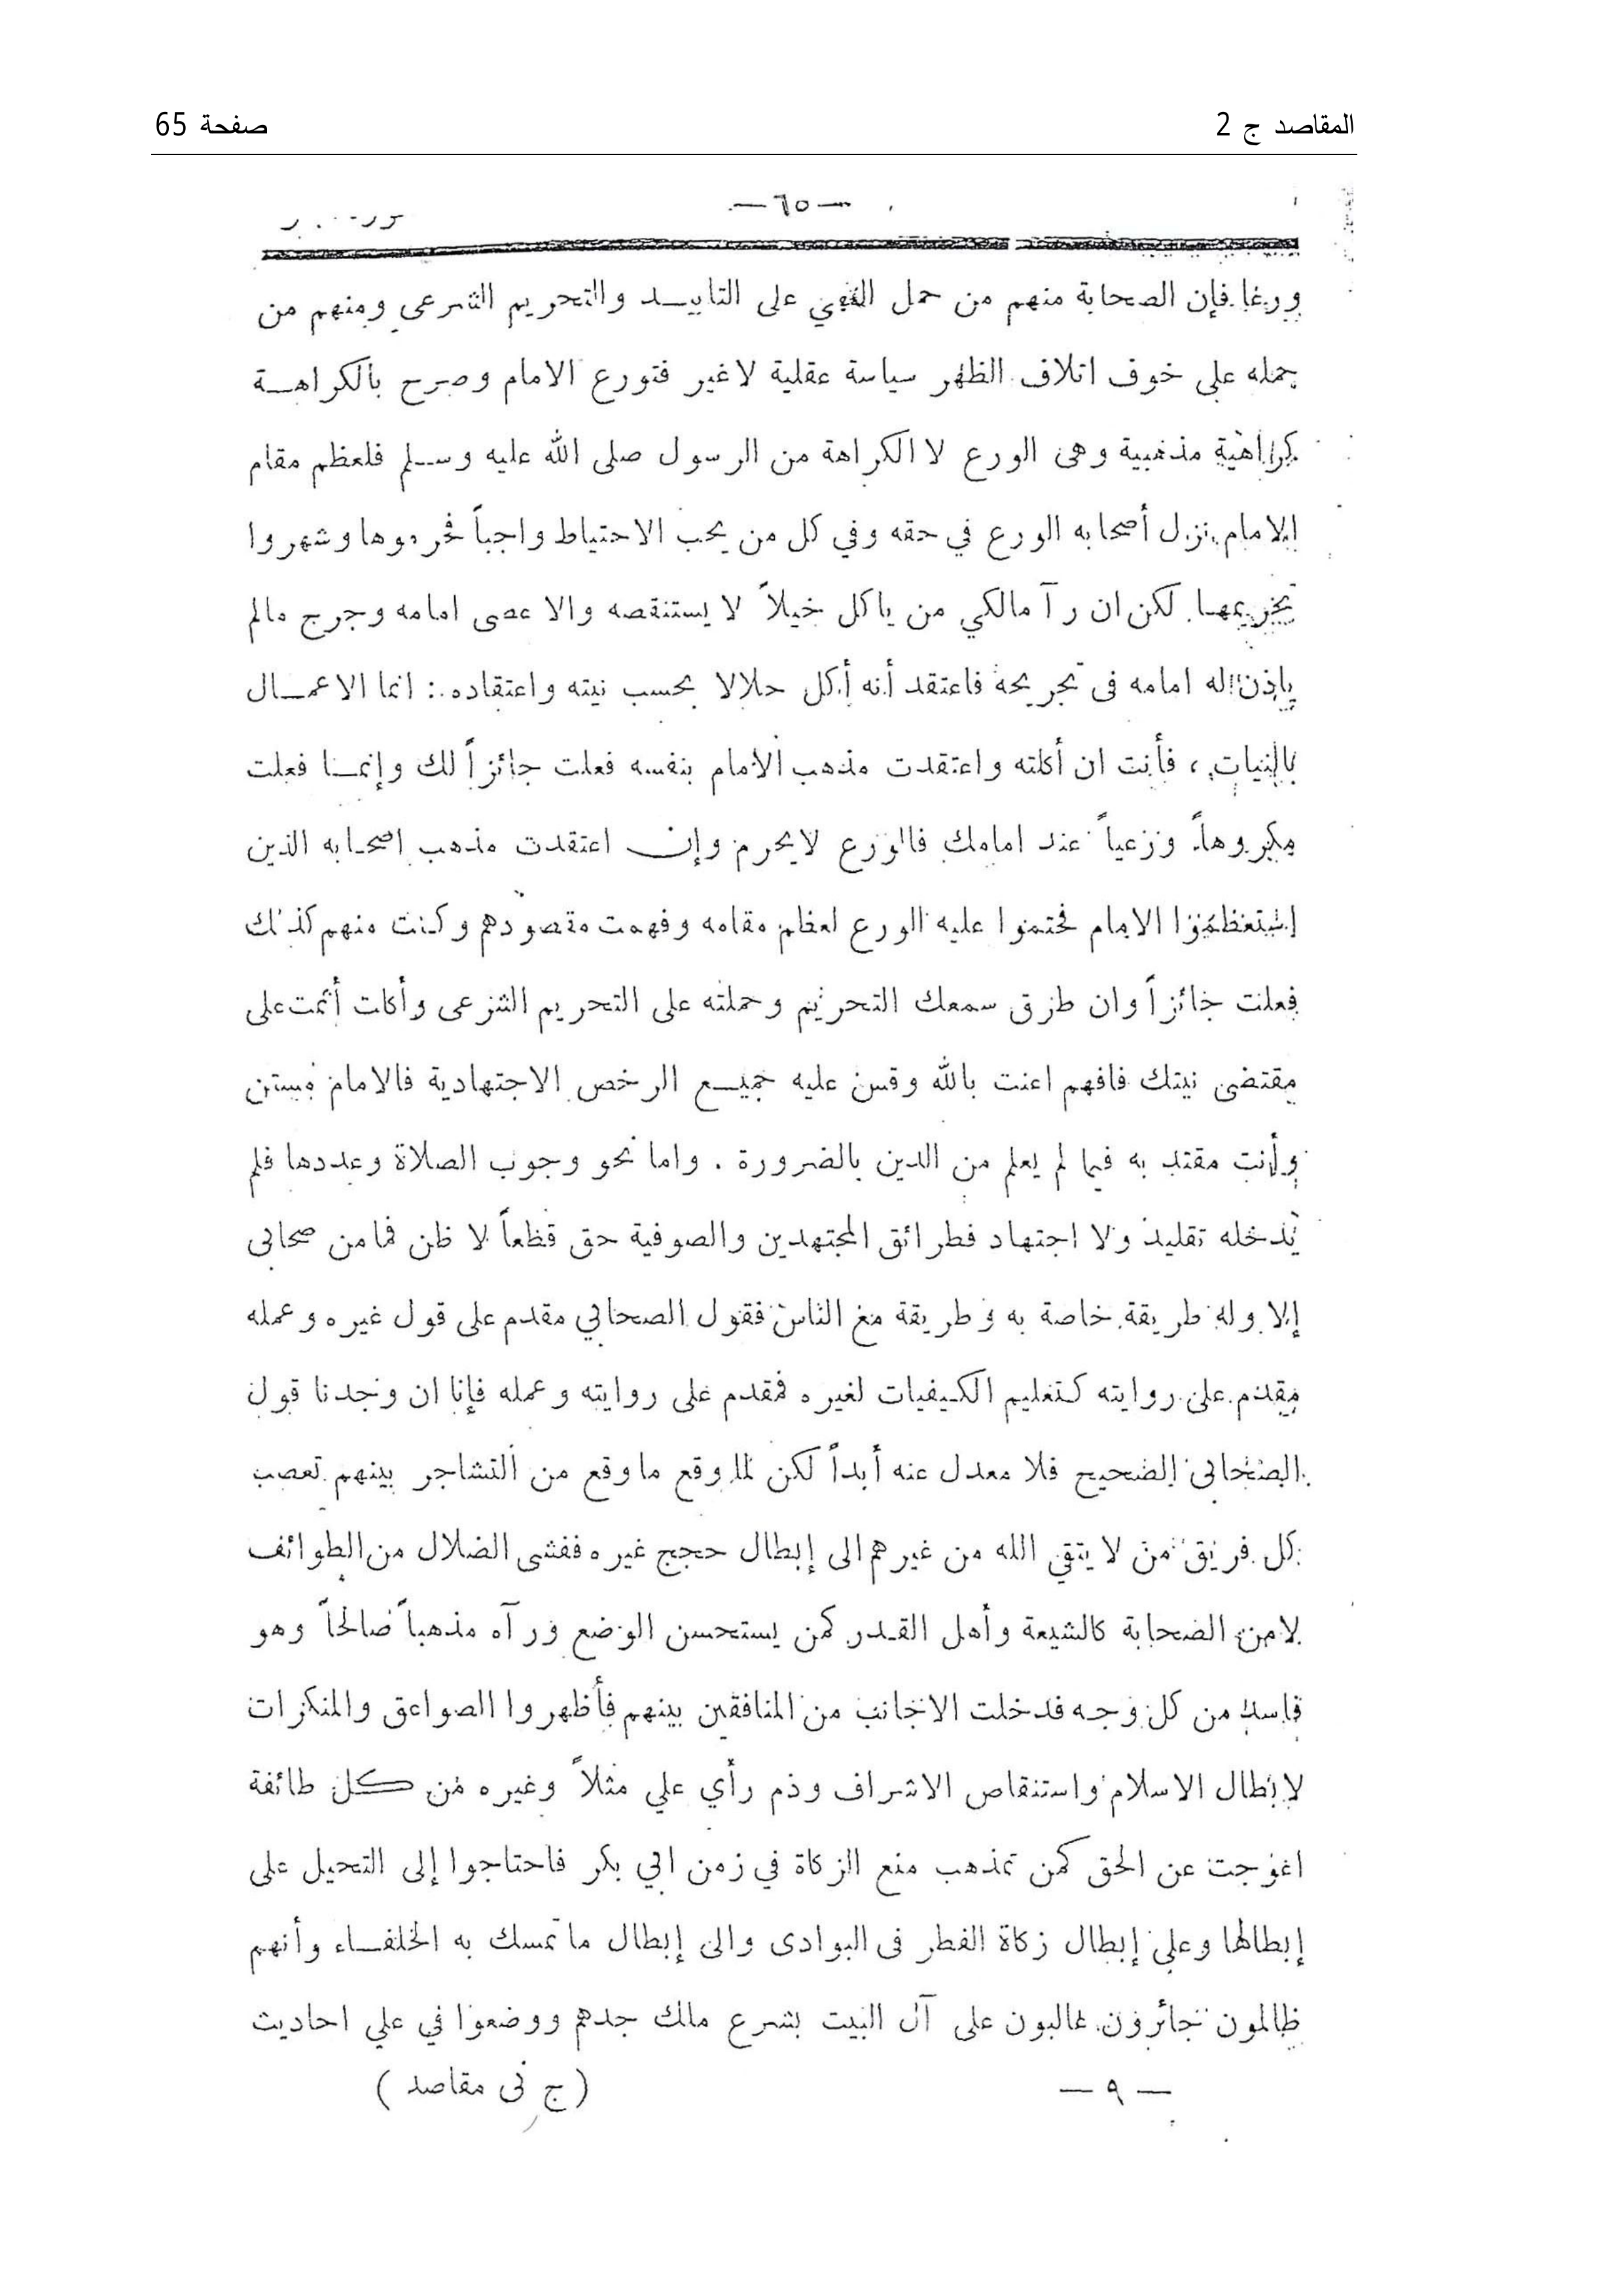 المقاصد ج 2
صفحة 65
— ٦٥ —
وورعا فإن الصحابة منهم من حمل النهي على التابيد والتحريم الشرعى ومنهم من
حمله على خوف اتلاف الظهر سياسة عقلية لا غير فتورع الامام وصرح بالكراهة
كراهية مذهبية وهى الورع لا الكراهة من الرسول صلى الله عليه وسلم فلعظم مقام
الامام نزل أصحابه الورع في حقه وفي كل من يحب الاحتياط واجباً فحرموها وشهروا
تحريمها لكن ان رآ مالكي من ياكل خيلاً لا يستنقصه والا عصى امامه وجرح مالم
ياذن له امامه فى تجريحه فاعتقد أنه أكل حلالا بحسب نيته واعتقاده : انما الاعمال
بالنيات ، فأنت ان أكلته واعتقدت مذهب الامام بنفسه فعلت جائزاً لك وإنما فعلت
مكروهاً ورعياً عند امامك فالورع لايحرم وإن اعتقدت مذهب اصحابه الذين
استعظموا الامام فحتموا عليه الورع لعظم مقامه وفهمت مقصودهم وكنت منهم كذلك
فعلت جائزاً وان طرق سمعك التحريم وحملته على التحريم الشرعى وأكلت أثمت على
مقتضى نيتك فافهم اعنت بالله وقس عليه جميع الرخص الاجتهادية فالامام مستن
وأنت مقتد به فيما لم يعلم من الدين بالضرورة . واما نحو وجوب الصلاة وعددها فلم
يدخله تقليد ولا اجتهاد فطرائق المجتهدين والصوفية حق قطعاً لا ظن فما من صحابى
إلا وله طريقة خاصة به وطريقة مع الناس فقول الصحابي مقدم على قول غيره وعمله
مقدم على روايته كتعليم الكيفيات لغيره فمقدم على روايته وعمله فإنا ان وجدنا قول
الصحابى الصحيح فلا معدل عنه أبداً لكن لما وقع ما وقع من التشاجر بينهم تعصب
كل فريق من لا يتقي الله من غيرهم الى إبطال حجج غيره ففشى الضلال من الطوائف
لا من الصحابة كالشيعة وأهل القدر كمن يستحسن الوضع ورآه مذهباً صالحاً وهو
فاسد من كل وجه فدخلت الاجانب من المنافقين بينهم فأظهروا الصواعق والمنكرات
لابطال الاسلام واستنقاص الاشراف وذم رأي علي مثلاً وغيره من كل طائفة
اعوجت عن الحق كمن تمذهب منع الزكاة في زمن ابي بكر فاحتاجوا إلى التحيل على
إبطالها وعلى إبطال زكاة الفطر فى البوادى والى إبطال ما تمسك به الخلفاء وأنهم
ظالمون جائرون غالبون على آل البيت بشرع ملك جدهم ووضعوا في علي احاديث
— ٩ —
( ج نى مقاصد )